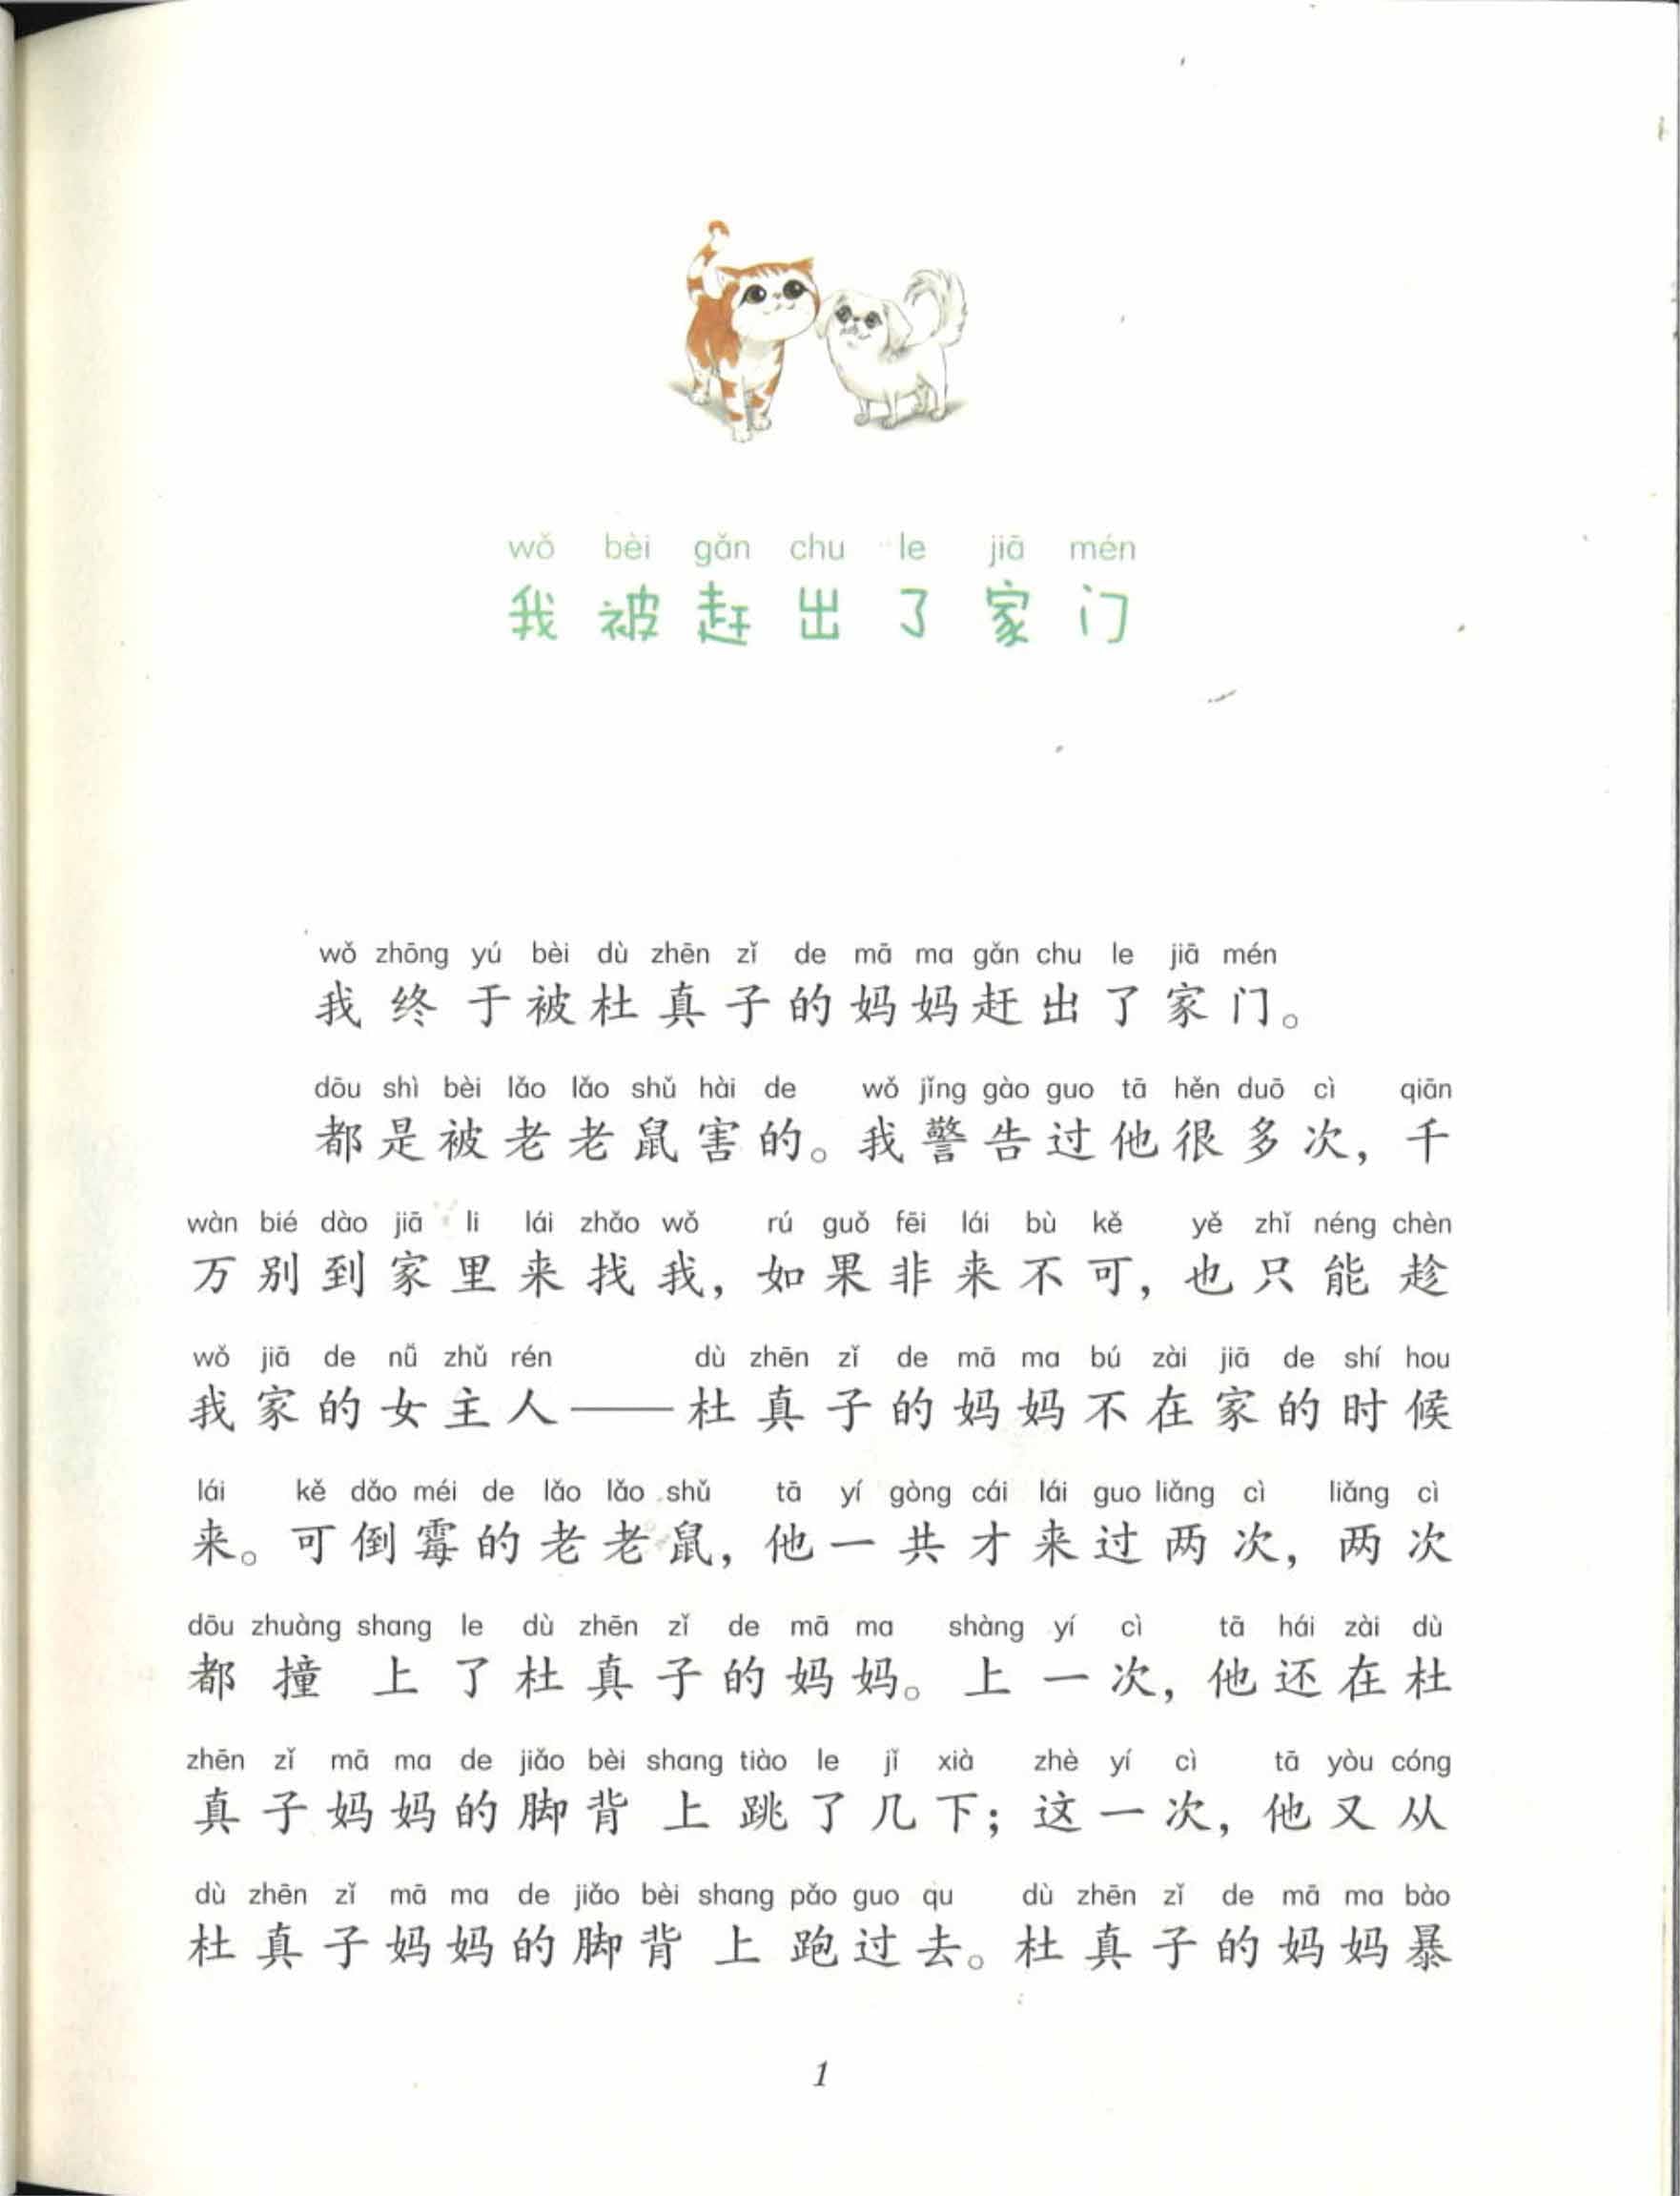 wǒ bèi gǎn chu le jiā mén
我被赶出了家门
wǒ zhōng yú bèi dù zhēn zǐ de mā ma gǎn chu le jiā mén
我终于被杜真子的妈妈赶出了家门。
dōu shì bèi lǎo lǎo shǔ hài de wǒ jǐng gào guo tā hěn duō cì qiān
都是被老老鼠害的。我警告过他很多次，千
wàn bié dào jiā li lái zhǎo wǒ rú guǒ fēi lái bù kě yě zhǐ néng chèn
万别到家里来找我，如果非来不可，也只能趁
wǒ jiā de nǚ zhǔ rén dù zhēn zǐ de mā ma bú zài jiā de shí hou
我家的女主人——杜真子的妈妈不在家的时候
lái kě dǎo méi de lǎo lǎo shǔ tā yí gòng cái lái guo liǎng cì liǎng cì
来。可倒霉的老老鼠，他一共才来过两次，两次
dōu zhuàng shang le dù zhēn zǐ de mā ma shàng yí cì tā hái zài dù
都撞上了杜真子的妈妈。上一次，他还在杜
zhēn zǐ mā ma de jiǎo bèi shang tiào le jǐ xià zhè yí cì tā yòu cóng
真子妈妈的脚背上跳了几下；这一次，他又从
dù zhēn zǐ mā ma de jiǎo bèi shang pǎo guo qu dù zhēn zǐ de mā ma bào
杜真子妈妈的脚背上跑过去。杜真子的妈妈暴
1